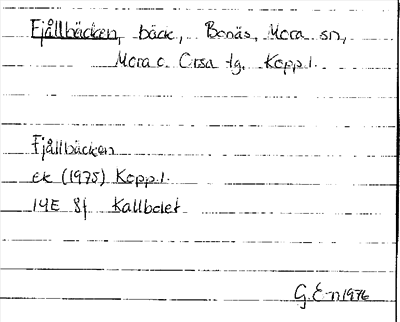 Fjållbäcken, bäck, Bonäs, Mora sn,
Mora o. Orsa tg, Kopp l.
Fjållbäcken
ek (1975) Kopp l.
14E 8f Kallbolet
G. E-n 1976